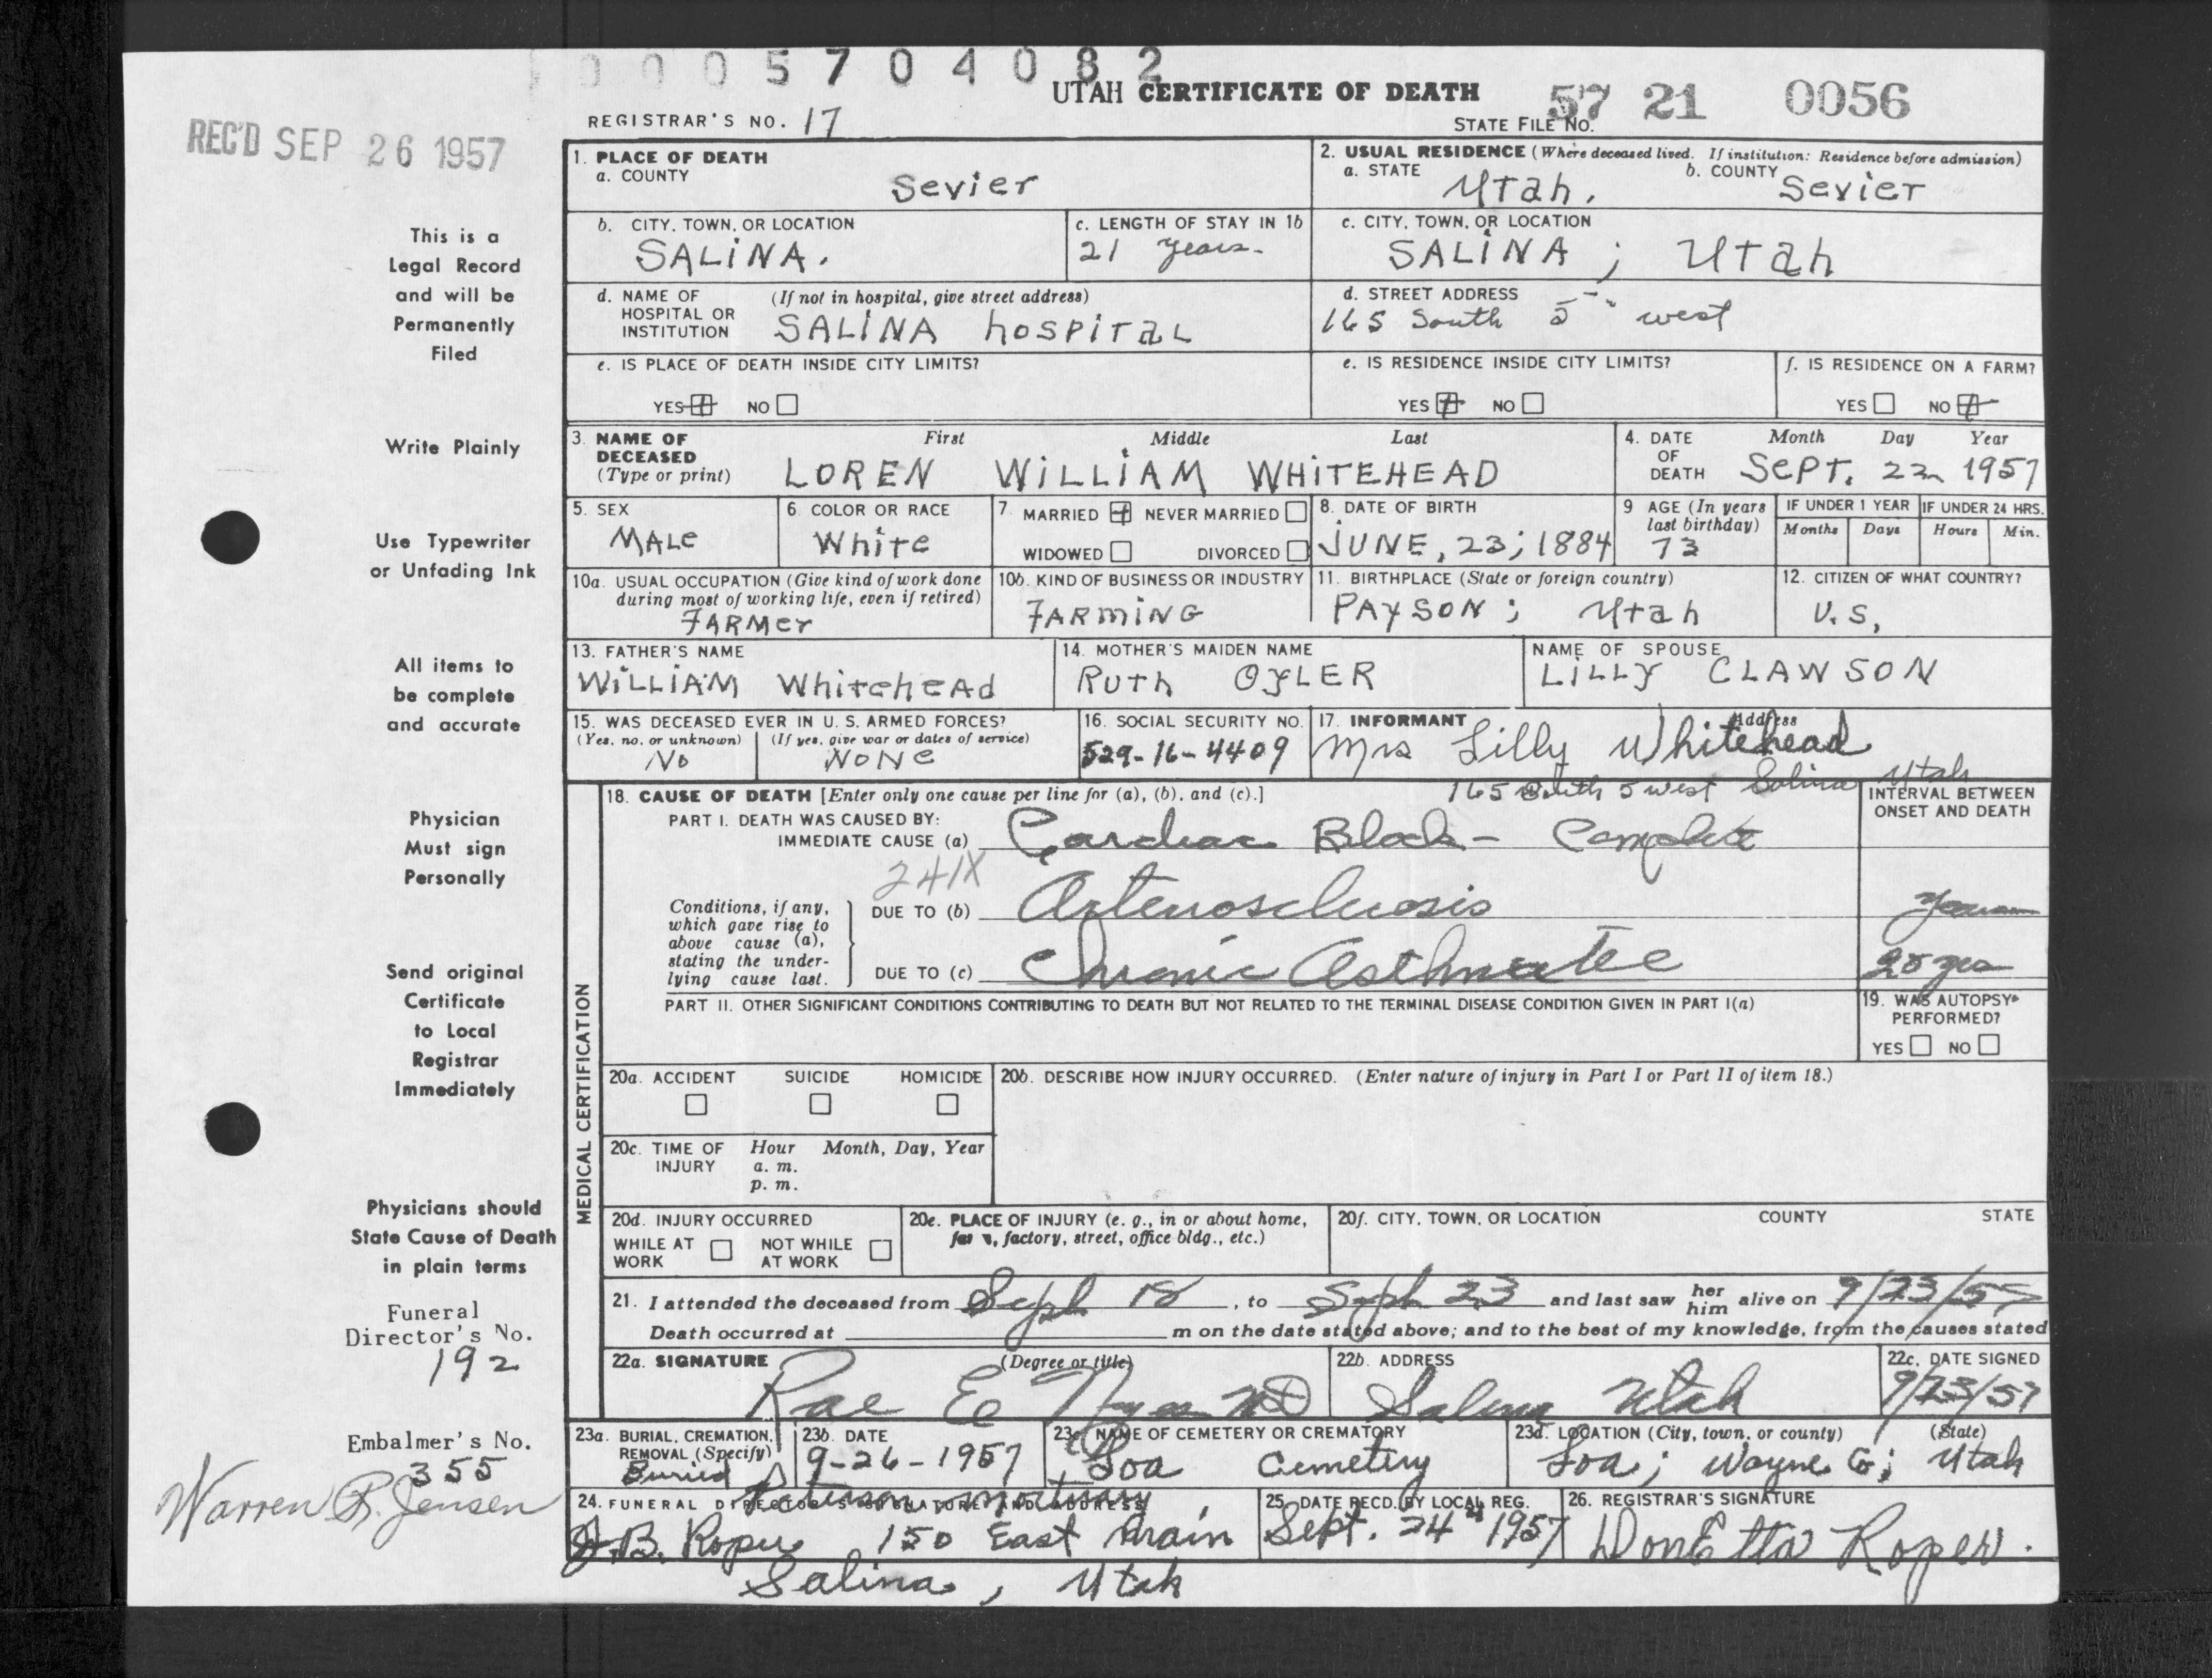 0 0 0 5 7 0 4 0 8 2
UTAH CERTIFICATE OF DEATH
57 21 0056
REGISTRAR'S NO. 17
STATE FILE NO.
REC'D SEP 26 1957
This is a
Legal Record
and will be
Permanently
Filed
Write Plainly
Use Typewriter
or Unfading Ink
All items to
be complete
and accurate
Physician
Must sign
Personally
Send original
Certificate
to Local
Registrar
Immediately
Physicians should
State Cause of Death
in plain terms
Funeral
Director's No.
192
Embalmer's No.
355
Warren R. Jensen
1. PLACE OF DEATH
a. COUNTY
Sevier
2. USUAL RESIDENCE (Where deceased lived. If institution: Residence before admission)
a. STATE Utah. b. COUNTY Sevier
b. CITY, TOWN, OR LOCATION
SALINA.
c. LENGTH OF STAY IN 1b
21 years.
c. CITY, TOWN, OR LOCATION
SALINA ; Utah
d. NAME OF HOSPITAL OR INSTITUTION (If not in hospital, give street address)
SALINA hospital
d. STREET ADDRESS
165 South 5 west
e. IS PLACE OF DEATH INSIDE CITY LIMITS?
YES NO
e. IS RESIDENCE INSIDE CITY LIMITS?
YES NO
f. IS RESIDENCE ON A FARM?
YES NO
3. NAME OF DECEASED (Type or print)
First Middle Last
LOREN WILLIAM WHITEHEAD
4. DATE OF DEATH
Month Day Year
SEPT. 22 1957
5. SEX
MALE
6. COLOR OR RACE
White
7. MARRIED NEVER MARRIED
WIDOWED DIVORCED
8. DATE OF BIRTH
JUNE, 23; 1884
9 AGE (In years last birthday)
73
IF UNDER 1 YEAR
Months Days
IF UNDER 24 HRS.
Hours Min.
10a. USUAL OCCUPATION (Give kind of work done during most of working life, even if retired)
FARMER
10b. KIND OF BUSINESS OR INDUSTRY
FARMING
11. BIRTHPLACE (State or foreign country)
PAYSON ; Utah
12. CITIZEN OF WHAT COUNTRY?
U.S,
13. FATHER'S NAME
WILLIAM Whitehead
14. MOTHER'S MAIDEN NAME
Ruth OYLER
NAME OF SPOUSE
LILLY CLAWSON
15. WAS DECEASED EVER IN U. S. ARMED FORCES?
(Yes, no, or unknown) (If yes, give war or dates of service)
No NONE
16. SOCIAL SECURITY NO.
529-16-4409
17. INFORMANT Address
Mrs Lilly Whitehead
165 South 5 west Salina Utah
MEDICAL CERTIFICATION
18. CAUSE OF DEATH [Enter only one cause per line for (a), (b), and (c).]
INTERVAL BETWEEN ONSET AND DEATH
PART I. DEATH WAS CAUSED BY:
IMMEDIATE CAUSE (a) Cardiac Block - Complete
241X
Conditions, if any, which gave rise to above cause (a), stating the underlying cause last.
DUE TO (b) Arteriosclerosis years
DUE TO (c) Chronic Asthmatic 20 yrs
PART II. OTHER SIGNIFICANT CONDITIONS CONTRIBUTING TO DEATH BUT NOT RELATED TO THE TERMINAL DISEASE CONDITION GIVEN IN PART I(a)
19. WAS AUTOPSY PERFORMED?
YES NO
20a. ACCIDENT SUICIDE HOMICIDE
20b. DESCRIBE HOW INJURY OCCURRED. (Enter nature of injury in Part I or Part II of item 18.)
20c. TIME OF INJURY
Hour Month, Day, Year
a. m.
p. m.
20d. INJURY OCCURRED
WHILE AT WORK NOT WHILE AT WORK
20e. PLACE OF INJURY (e. g., in or about home, factory, street, office bldg., etc.)
20f. CITY, TOWN, OR LOCATION COUNTY STATE
21. I attended the deceased from Sept 18, to Sept 23 and last saw her him alive on 9/23/57
Death occurred at m on the date stated above; and to the best of my knowledge, from the causes stated
22a. SIGNATURE (Degree or title)
Rae E Noyes MD
22b. ADDRESS
Salina Utah
22c. DATE SIGNED
9/23/57
23a. BURIAL, CREMATION, REMOVAL (Specify)
Buried
23b. DATE
9-26-1957
23c. NAME OF CEMETERY OR CREMATORY
Loa Cemetery
23d. LOCATION (City, town, or county) (State)
Loa; Wayne Co; Utah
24. FUNERAL DIRECTOR'S SIGNATURE AND ADDRESS
Mortuary
J.B. Roper 150 East Main
Salina, Utah
25. DATE RECD. BY LOCAL REG.
Sept. 24th 1957
26. REGISTRAR'S SIGNATURE
DonEtta Roper.